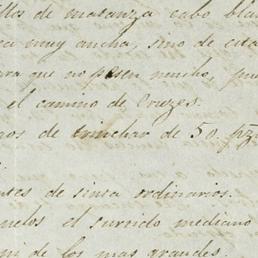 llos de matanza cabo bla
ca muy ancha, sino de cita
ra que no pesen mucho, pue
el camino de Cruzes.
nos de trinchar de 50. pz
ntes de sinta ordinarios.
uelos el surtido mediano
ni de los mas grandes.